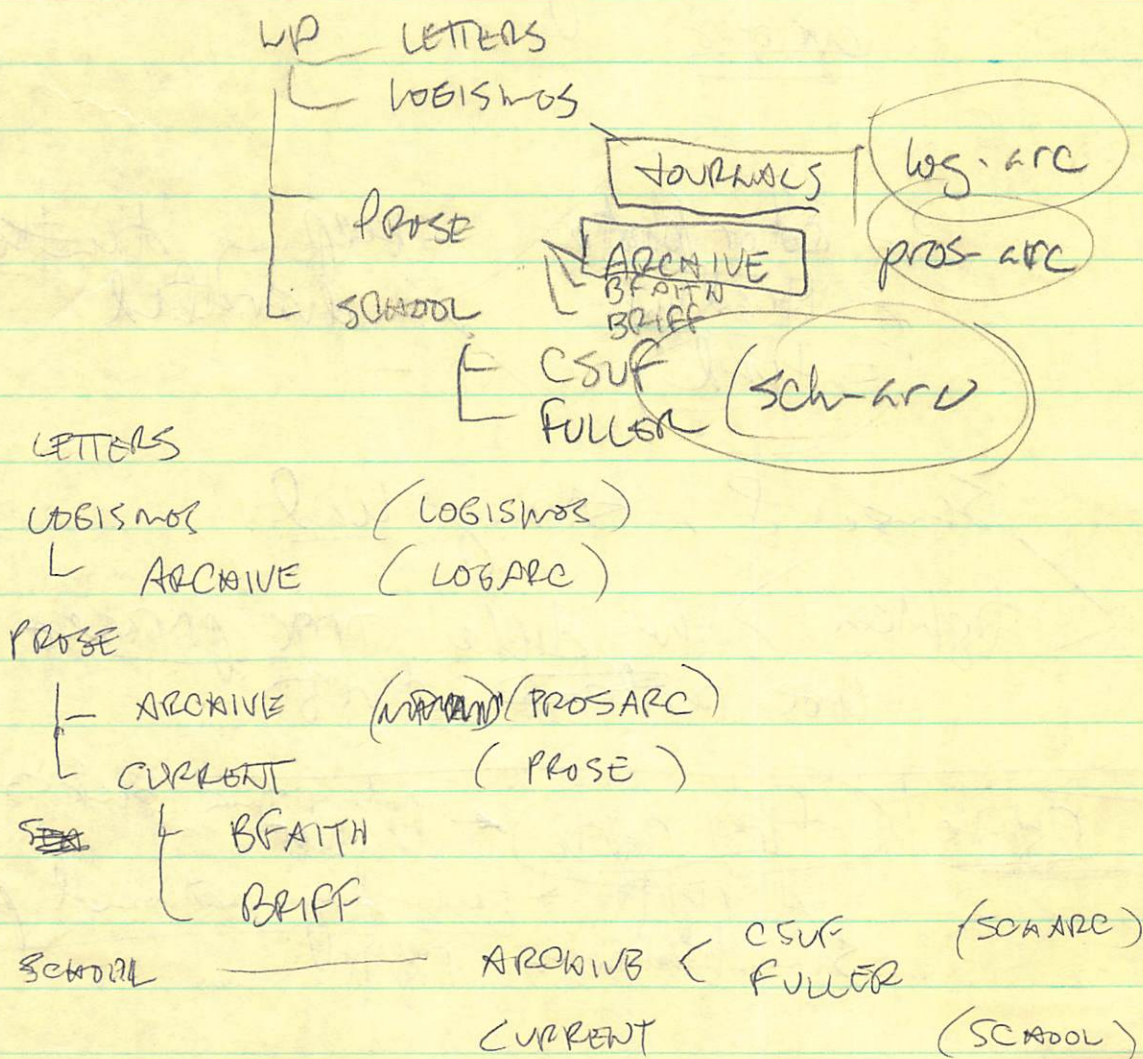 WP LETTERS
LOGISMOS
JOURNALS log-arc
PROSE ARCHIVE pros-arc
BFAITH
SCHOOL BRIFF
CSUF (sch-arc
FULLER
LETTERS
LOGISMOS (LOGISMOS)
ARCHIVE (LOGARC)
PROSE
ARCHIVE (PROSARC)
CURRENT (PROSE)
BFAITH
BRIFF
CSUF (SCHARC)
SCHOOL ARCHIVE < FULLER
CURRENT (SCHOOL)